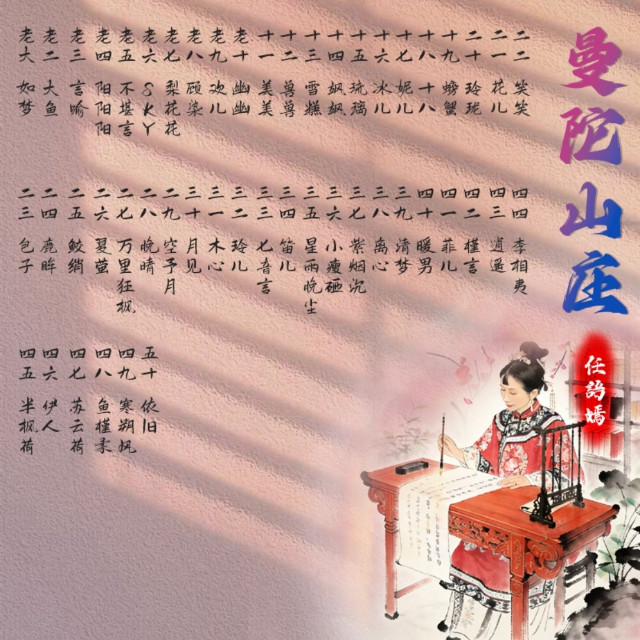 曼陀山庄
任詩嫣
老大 如梦
老二 大鱼
老三 言喻
老四 阳阳阳
老五 不堪言
老六 SKY
老七 梨花花
老八 顾染
老九 次儿
老十 幽幽
十一 美美
十二 兽兽
十三 雪糕
十四 飒飒
十五 琉璃
十六 冰儿
十七 妮儿
十八 十八
十九 螃蟹
二十 玲珑
二一 花儿
二二 笑笑
二三 包子
二四 鹿眸
二五 鲛绡
二六 夏萤
二七 万里狂枫
二八 晚晴
二九 空予月
三十 月见
三一 木心
三二 玲儿
三三 七音言
三四 笛儿
三五 星雨晚尘
三六 小瘦砸
三七 紫烟沉
三八 离心
三九 清梦
四十 暖男
四一 菲儿
四二 槿言
四三 逍遥
四四 李相夷
四五 半枫荷
四六 伊人
四七 苏云荷
四八 鱼槿柔
四九 寒朔枫
五十 依旧